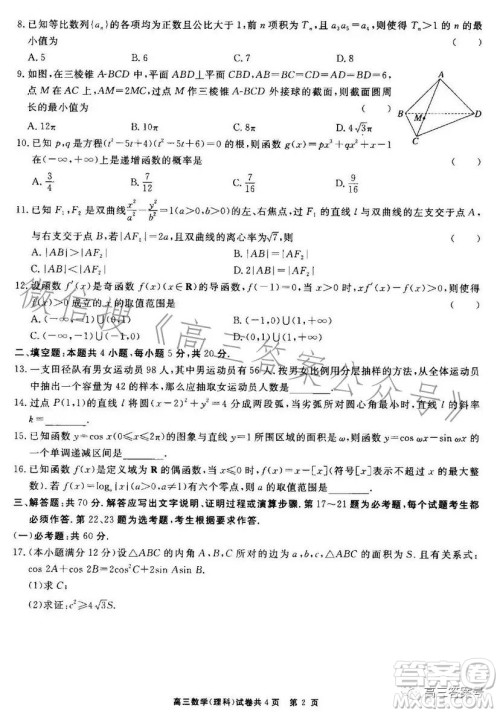 8. 已知等比数列{aₙ}的各项均为正数且公比大于 1,前 n 项积为 Tₙ,且 a₂a₅=a₃,则使得 Tₙ>1 的 n 的最
小值为 ( )
A. 5 B. 6 C. 7 D. 8
9. 如图,在三棱锥 A-BCD 中,平面 ABD⊥平面 BCD,且△ABD 和△BCD 均为等边三角形,AB=6,
点 M 在 AC 上,AM=2MC,过点 M 作三棱锥 A-BCD 外接球的截面,则截面圆周
长的最小值为 ( )
A. 12π B. 10π C. 8π D. 4√3π
A B C D M
10. 已知 p,q 是方程(t²-5t+4)(t²-5t+6)=0 的根,则函数 g(x)=
在(-∞,+∞)上是递增函数的概率是 ( )
A. 3/4 B. 7/12 C. 7/16 D. 9/16
11. 已知 F₁,F₂ 是双曲线x²/a²-y²/b²=1(a>0,b>0)的左、右焦点,过 F₁ 的直线 l 与双曲线的左支交于点 A,
与右支交于点 B,若|AF₁|=2a,且双曲线的离心率为√7,则 ( )
A. |AB|>|AF₂| B. |AB|=|AF₂|
C. |AB|<|AF₂| D.
12. 设函数 f′(x)是奇函数 f(x)(x∈R)的导函数,f(-1)=0,当 x>0 时,xf′(x)-f(x)>0,则使得
f(x)>0 成立的 x 的取值范围是 ( )
A. (-∞,-1)∪(0,1) B. (-1,0)∪(1,+∞)
C. (-∞,-1)∪(-1,0) D. (0,1)∪(1,+∞)
二、填空题:本题共 4 小题,每小题 5 分,共 20 分.
13. 一支田径队有男女运动员 98 人,其中男运动员有 56 人.按男女比例用分层抽样的方法,从全体运动
员中抽出一个容量为 42 的样本,那么应抽取女运动员人数是
14. 过点 P(1,1)的直线 l 将圆(x-2)²+y²=4 分成两段弧,当劣弧所对圆心角最小时,直线 l 的斜率
k=
15. 已知函数 y=cos x(0<x<2π)的图象与直线 y=
的一个单调递减区间为
16. 已知函数 f(x)是定义域为 R 的偶函数,当 x≤0 时,f(x)=x-[x](其中[x]表示不超过 x 的最大整
数),则函数 g(x)=log₄|x|-f(x)的零点个数为
三、解答题:共 70 分. 解答应写出文字说明、证明过程或演算步骤. 第 17~21 题为必考题,每个试题考生都
必须作答. 第 22、23 题为选考题,考生根据要求作答.
(一)必考题:共 60 分.
17. (本小题满分 12 分)设△ABC 的内角 A,B,C 的对边分别为 a,b,c,△ABC 的面积为 S. 已知
cos 2A+cos 2B=2cos 2C+2Asin B.
(1)求
(2)求证:c²≥4√3S.
微信搜《高三答案公众号》
高三数学(理科)试卷共 4 页 第 2 页
高三答案号